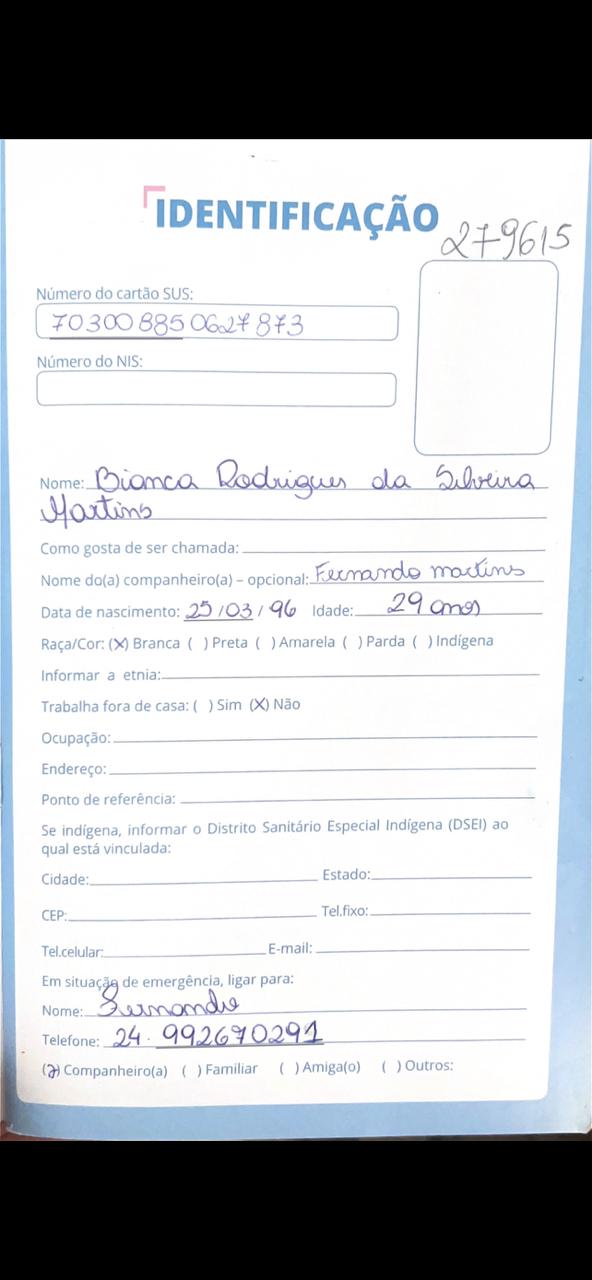 IDENTIFICAÇÃO
279615
Número do cartão SUS:
703008850627873
Número do NIS:
Nome: Bianca Rodrigues da Silveira
Martins
Como gosta de ser chamada:
Nome do(a) companheiro(a) – opcional: Fernando martins
Data de nascimento: 25/03/96 Idade: 29 anos
Raça/Cor: (X) Branca ( ) Preta ( ) Amarela ( ) Parda ( ) Indígena
Informar a etnia:
Trabalha fora de casa: ( ) Sim (X) Não
Ocupação:
Endereço:
Ponto de referência:
Se indígena, informar o Distrito Sanitário Especial Indígena (DSEI) ao
qual está vinculada:
Cidade: Estado:
CEP: Tel.fixo:
Tel.celular: E-mail:
Em situação de emergência, ligar para:
Nome: Fernando
Telefone: 24 · 992670291
(X) Companheiro(a) ( ) Familiar ( ) Amiga(o) ( ) Outros: